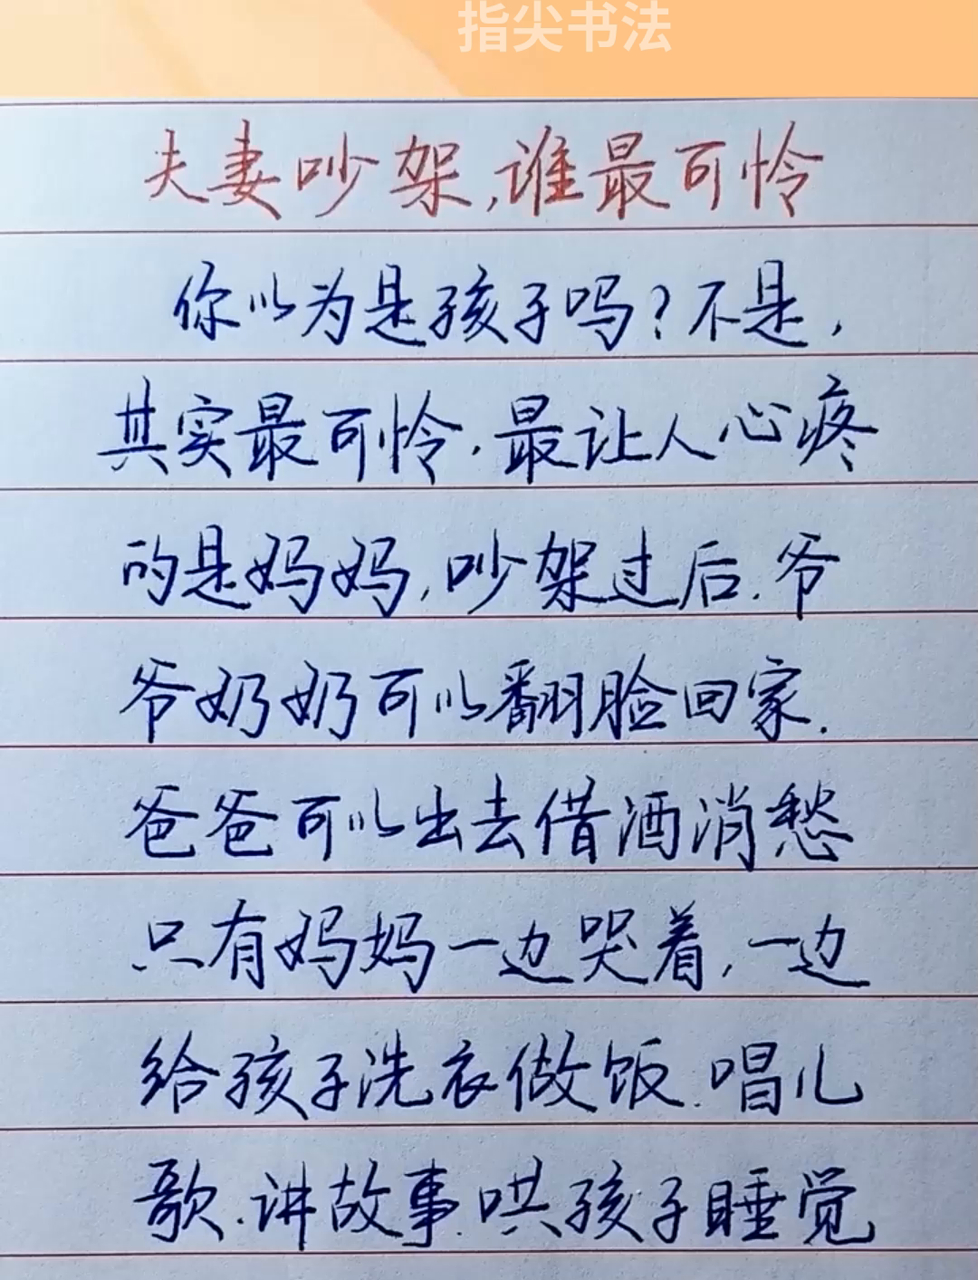 指尖书法
夫妻吵架,谁最可怜
你以为是孩子吗?不是,
其实最可怜.最让人心疼
的是妈妈,吵架过后.爷
爷奶奶可以翻脸回家.
爸爸可以出去借酒消愁
只有妈妈一边哭着,一边
给孩子洗衣做饭.唱儿
歌.讲故事.哄孩子睡觉